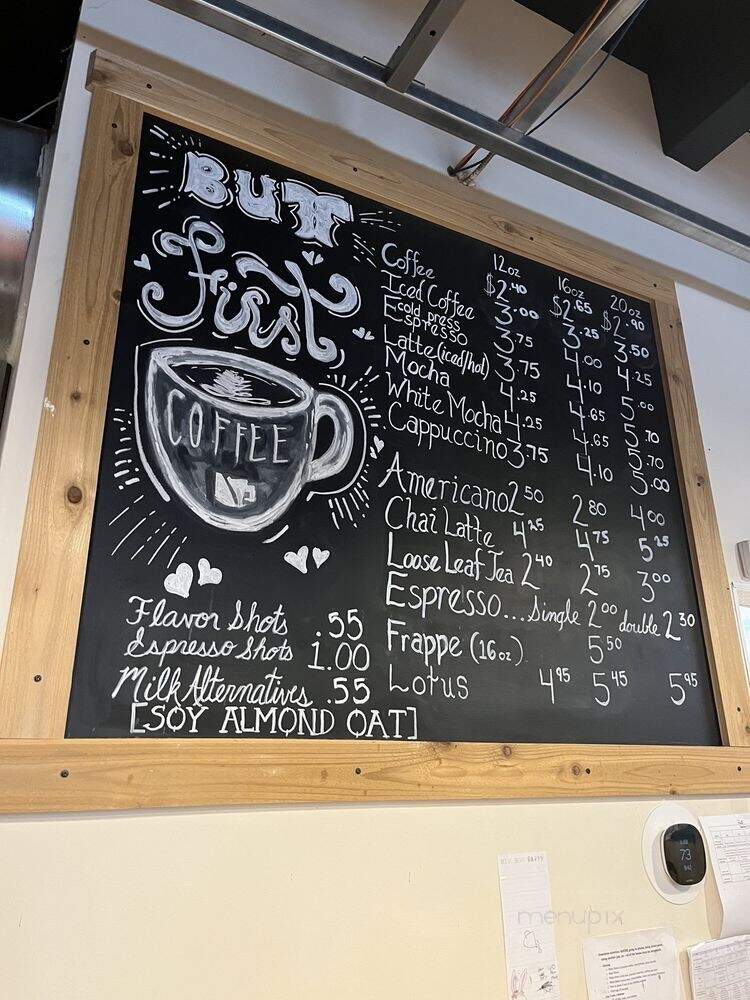 BUTT
First
COFFEE
12oz 16oz 20oz
Coffee $2.40 $2.65 $2.90
Iced Coffee 3.00 3.25 3.50
cold press
Espresso 3.75 4.00 4.25
Latte (iced/hot) 3.75 4.10 5.00
Mocha 4.25 4.65 5.70
White Mocha 4.25 4.65 5.70
Cappuccino 3.75 4.10 5.00
Americano 2.50 2.80 4.00
Chai Latte 4.25 4.75 5.25
Loose Leaf Tea 2.40 2.75 3.00
Espresso... Single 2.00 double 2.30
Frappe (16oz) 5.50
Lotus 4.95 5.45 5.95
Flavor Shots .55
Espresso Shots 1.00
Milk Alternatives .55
[SOY ALMOND OAT]
73
menupix